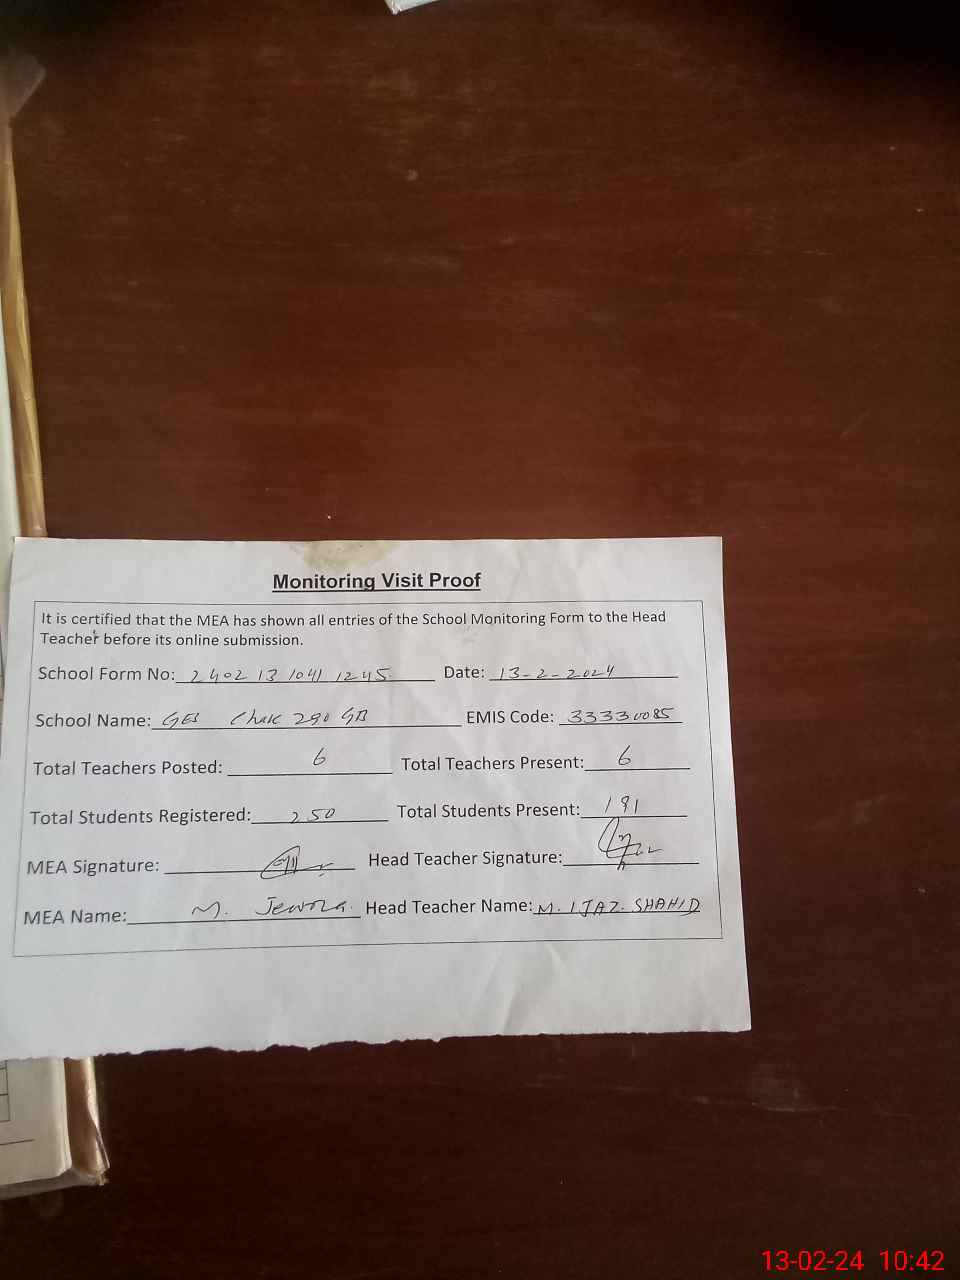 Monitoring Visit Proof
It is certified that the MEA has shown all entries of the School Monitoring Form to the Head
Teacher before its online submission.
School Form No: 2402 13 1041 1245 Date: 13-2-2024
School Name: GES Chak 290 GB EMIS Code: 33330085
Total Teachers Posted: 6 Total Teachers Present: 6
Total Students Registered: 250 Total Students Present: 191
MEA Signature: Head Teacher Signature:
MEA Name: M. Head Teacher Name: M. IJAZ. SHAHID
13-02-24 10:42